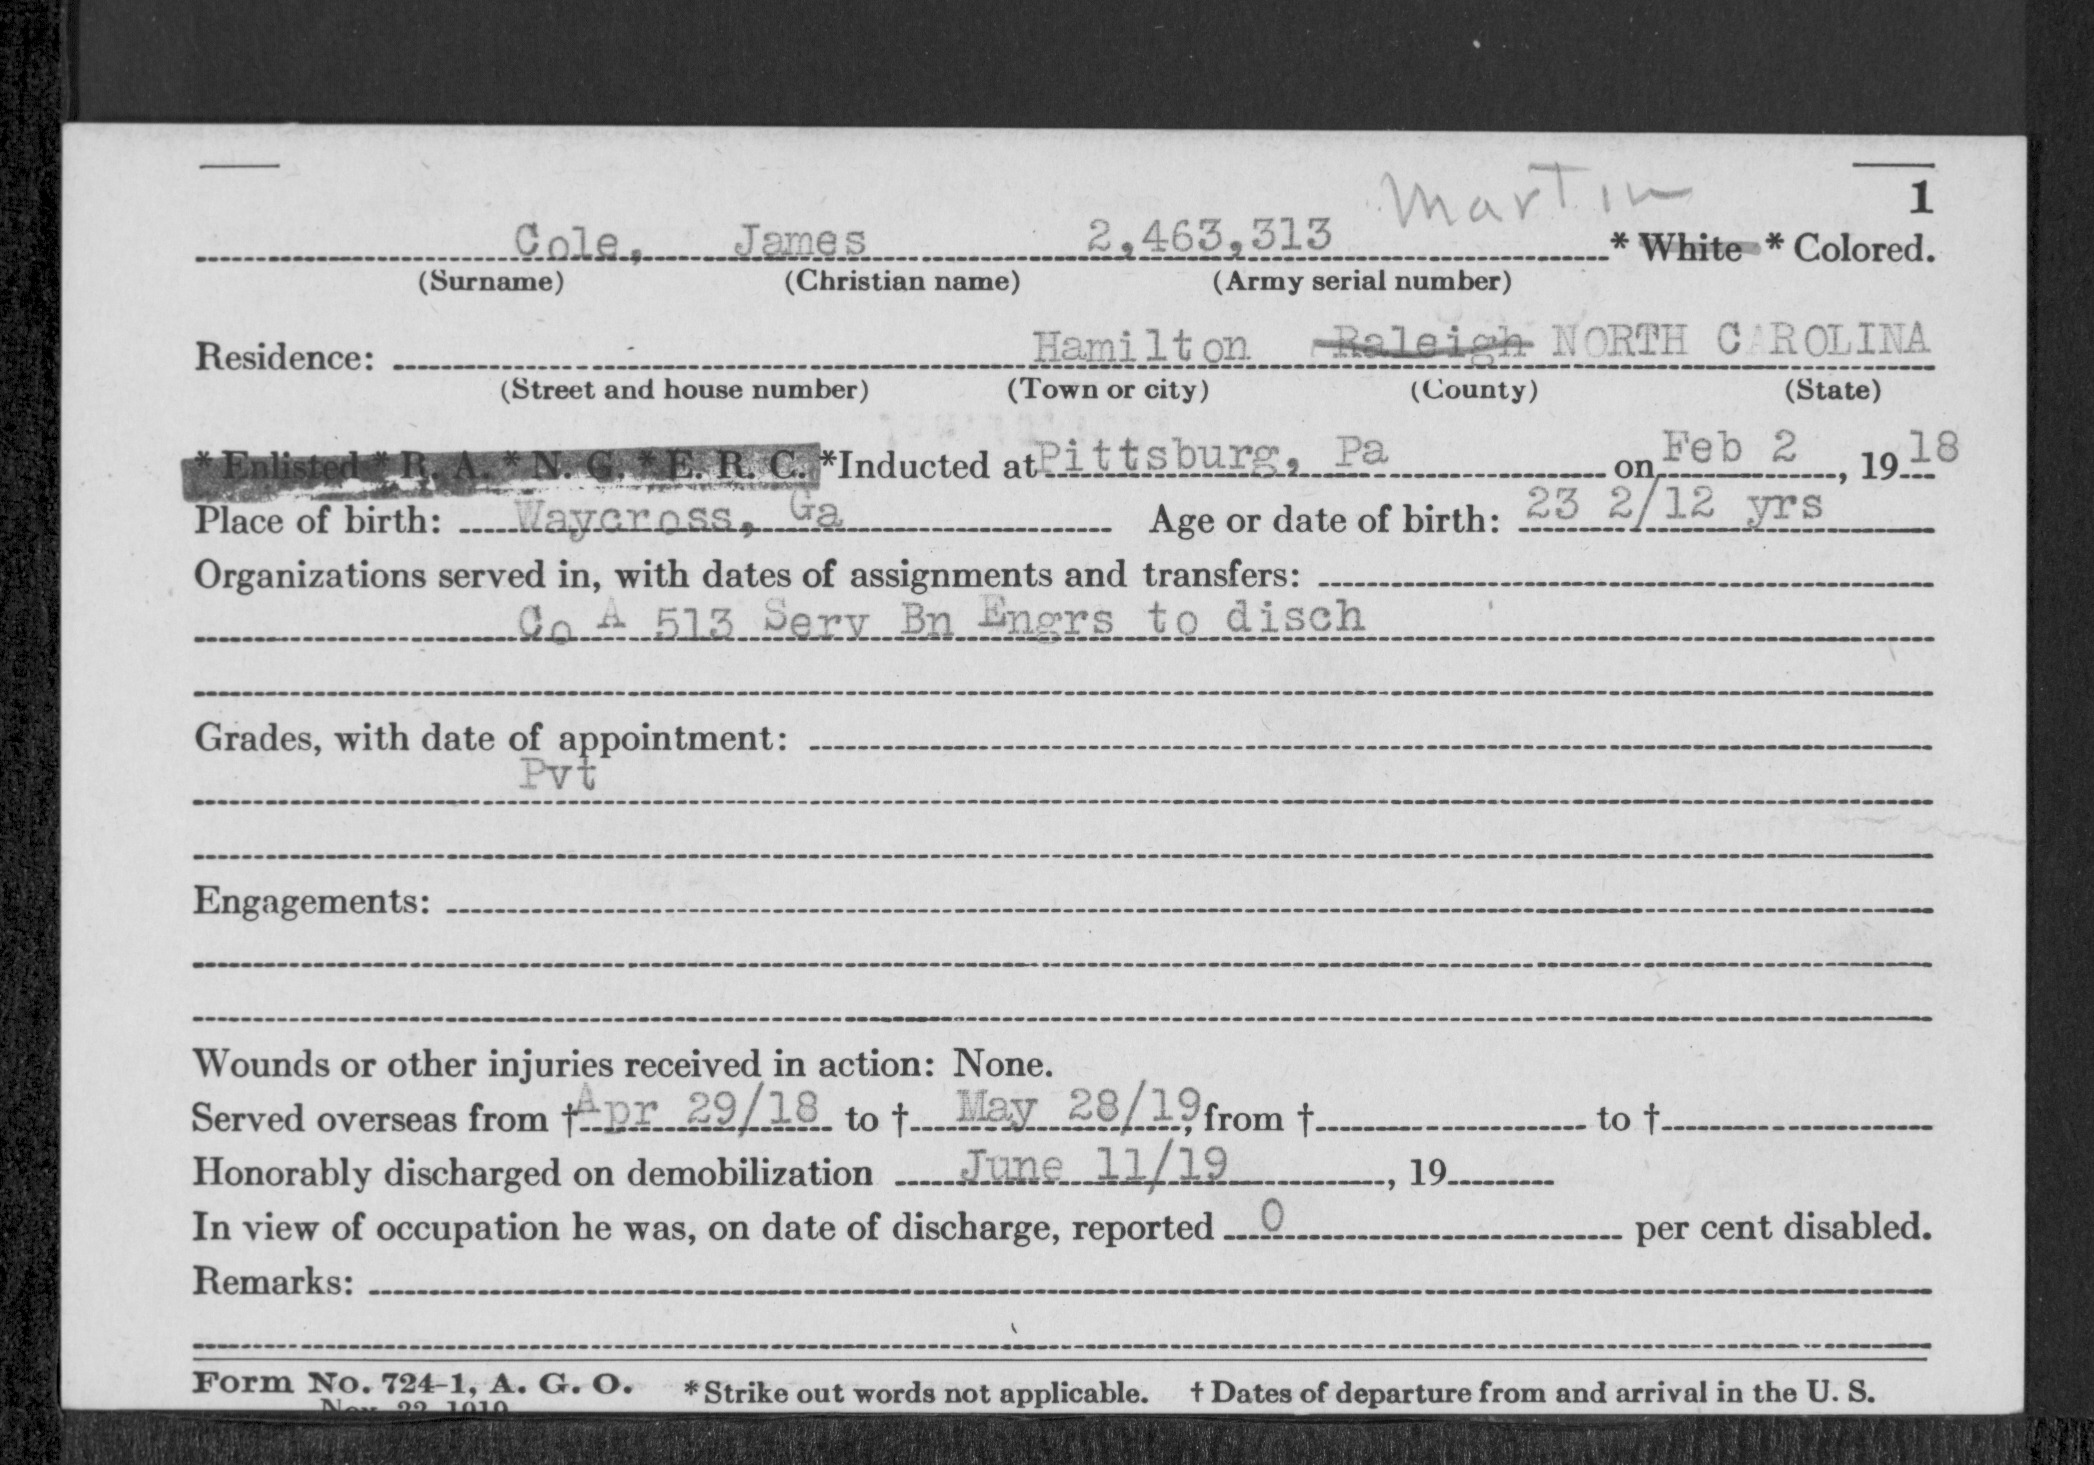 Martin
1
Cole, James 2,463,313 * White * Colored.
(Surname) (Christian name) (Army serial number)
Residence: Hamilton Raleigh NORTH CAROLINA
(Street and house number) (Town or city) (County) (State)
* Enlisted * R. A. * N. G. * E. R. C. *Inducted at Pittsburg, Pa on Feb 2, 19 18
Place of birth: Waycross, Ga Age or date of birth: 23 2/12 yrs
Organizations served in, with dates of assignments and transfers:
Co A 513 Serv Bn Engrs to disch
Grades, with date of appointment:
Pvt
Engagements:
Wounds or other injuries received in action: None.
Served overseas from † Apr 29/18 to † May 28/19, from † to †
Honorably discharged on demobilization June 11/19, 19
In view of occupation he was, on date of discharge, reported 0 per cent disabled.
Remarks:
Form No. 724-1, A. G. O. * Strike out words not applicable. † Dates of departure from and arrival in the U. S.
Nov. 22, 1919